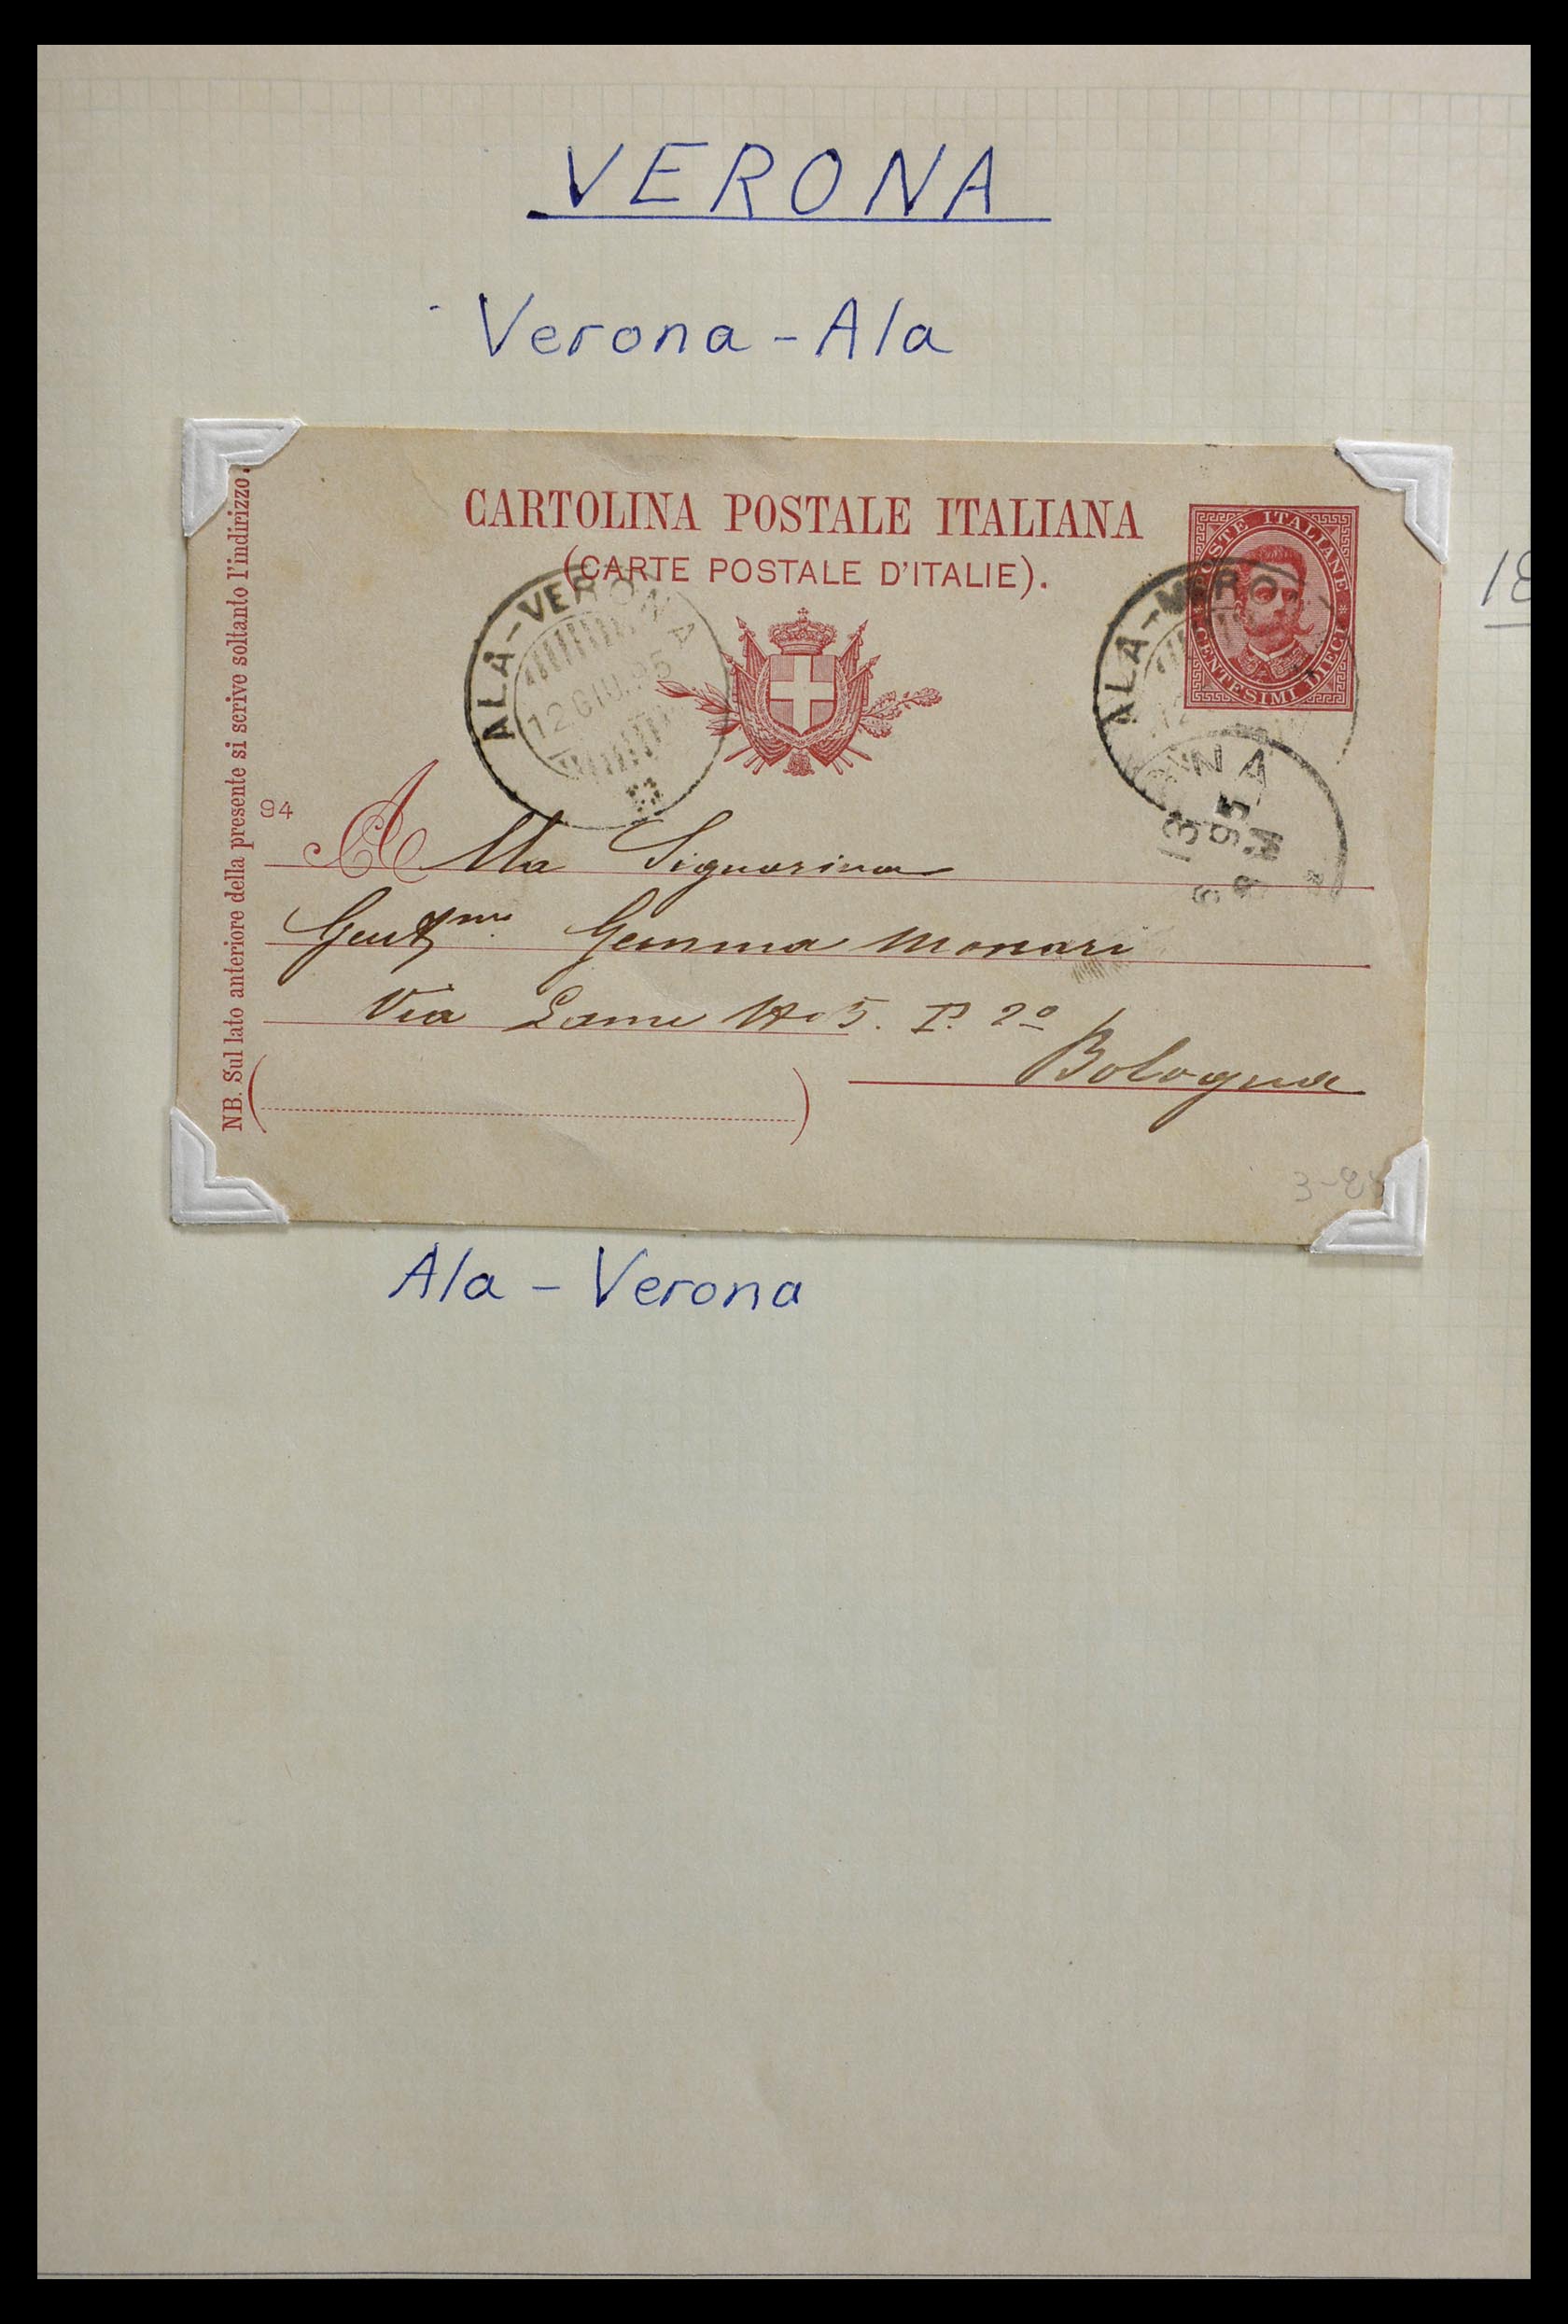 VERONA
Verona - Ala
18
NB. Sul lato anteriore della presente si scrive soltanto l'indirizzo.
CARTOLINA POSTALE ITALIANA
(CARTE POSTALE D'ITALIE).
POSTE ITALIANE
CENTESIMI DIECI
ALA-VERONA
12 GIU. 95
ALA-VERO
12
13
95
94
Alla Signorina
Gemma Monari
Via Lame No 5. P. 2º
Bologna
Ala - Verona